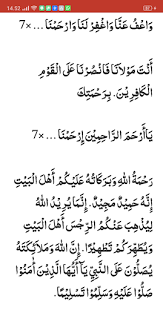 14.52
وَاعْفُ عَنَّا وَاغْفِرْ لَنَا وَارْحَمْنَا ... ×7
أَنْتَ مَوْلَانَا فَانْصُرْنَا عَلَى الْقَوْمِ
الْكَافِرِيْنَ. بِرَحْمَتِكَ
يَاأَرْحَمَ الرَّاحِمِيْنَ إِرْحَمْنَا ... ×7
رَحْمَةُ اللهِ وَبَرَكَاتُهُ عَلَيْكُمْ أَهْلَ الْبَيْتِ
إِنَّهُ حَمِيْدٌ مَجِيْدٌ. إِنَّمَا يُرِيْدُ اللهُ
لِيُذْهِبَ عَنْكُمُ الرِّجْسَ أَهْلَ الْبَيْتِ
وَيُطَهِّرَكُمْ تَطْهِيْرًا. إِنَّ اللهَ وَمَلَائِكَتَهُ
يُصَلُّوْنَ عَلَى النَّبِيِّ يَاأَيُّهَا الَّذِيْنَ أٰمَنُوْا
صَلُّوْا عَلَيْهِ وَسَلِّمُوْا تَسْلِيْمًا.